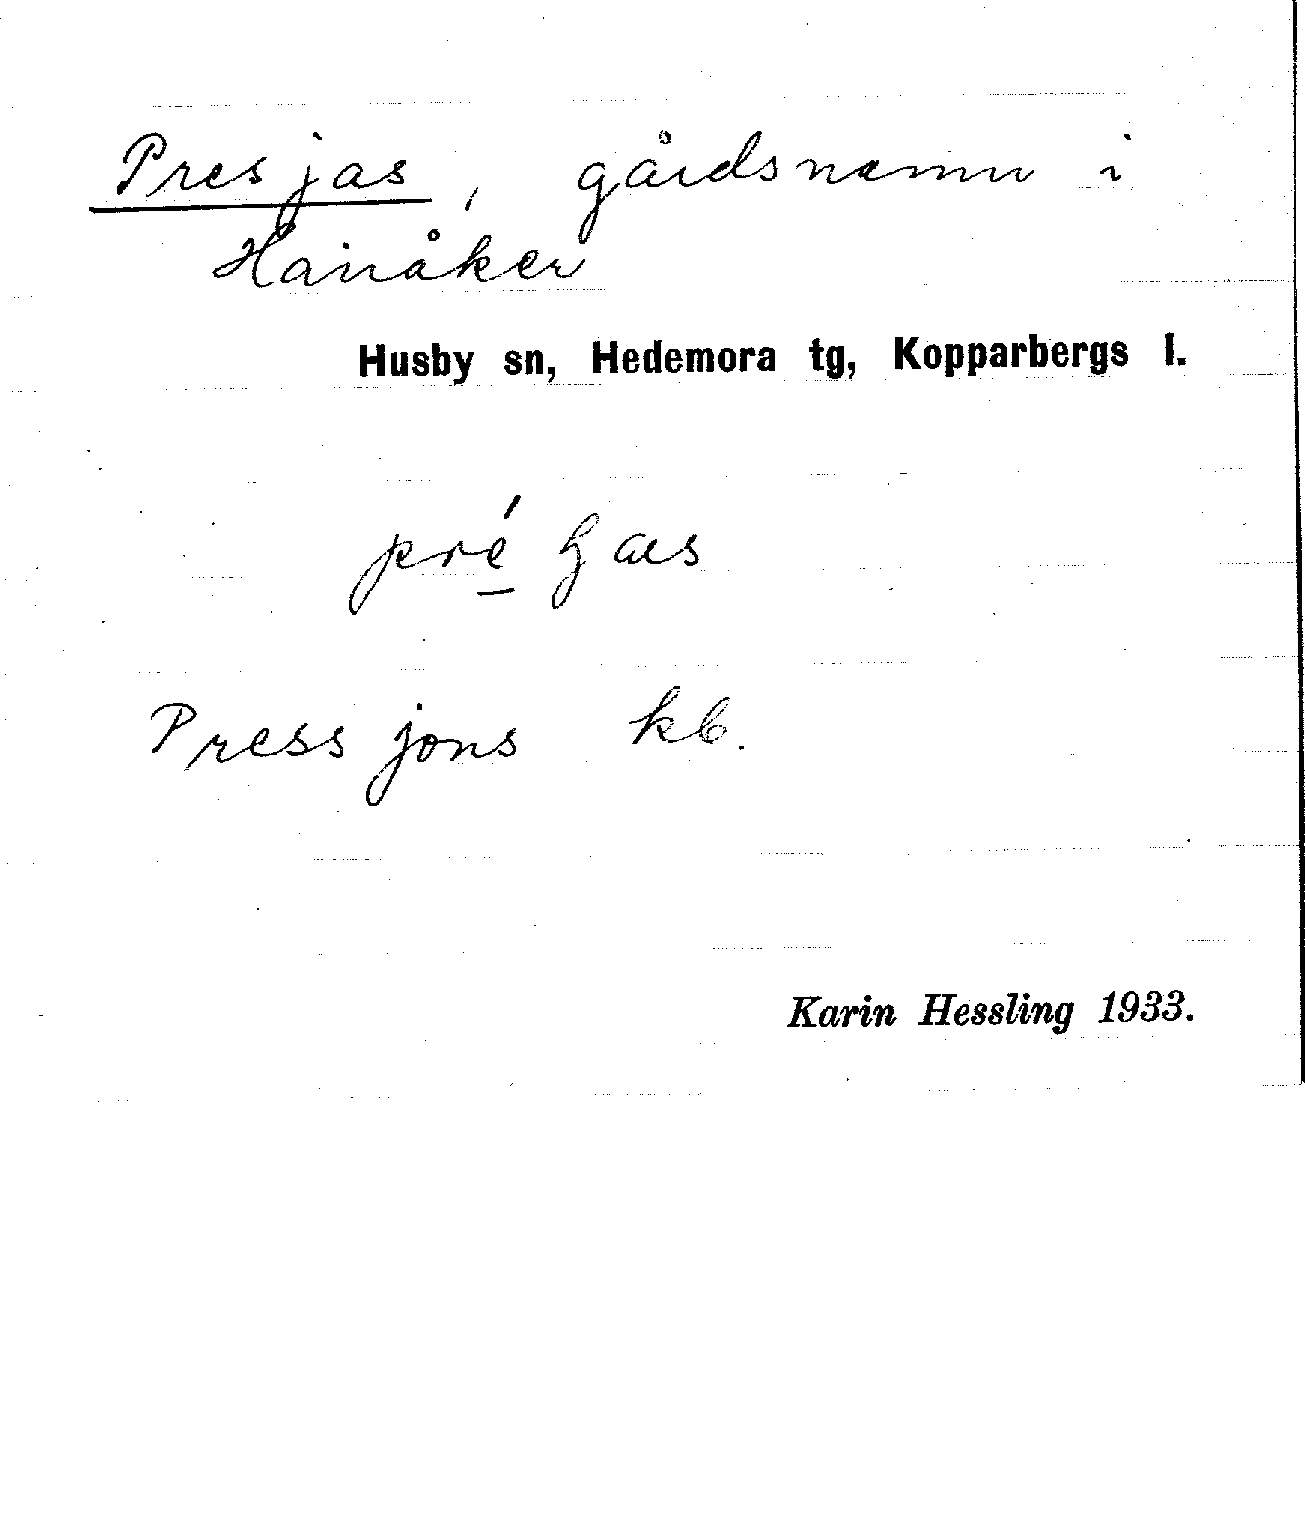 Presjas, gårdsnamn i
Hanåker
Husby sn, Hedemora tg, Kopparbergs l.
Pressjons kb.
Karin Hessling 1933.